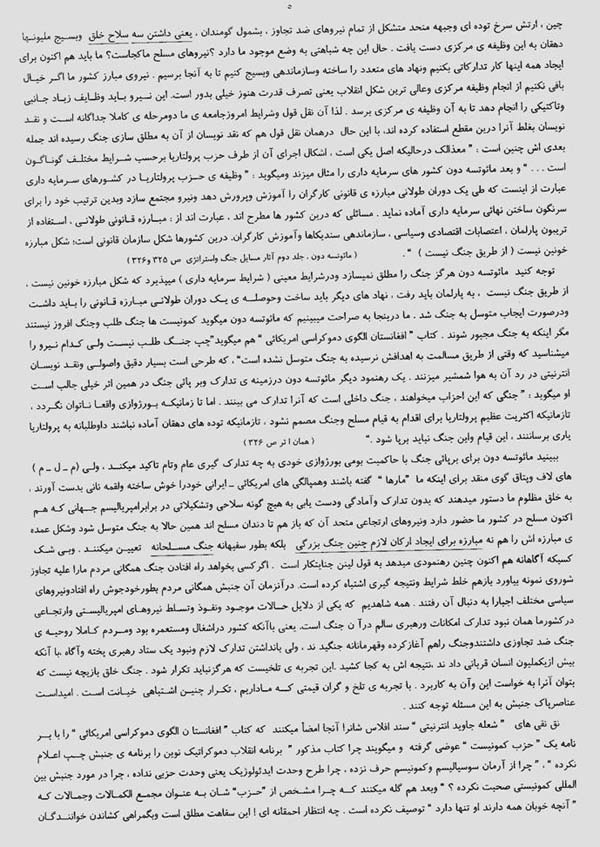 ۵
چین ، ارتش سرخ توده ای وجبهه متحد متشکل از تمام نیروهای ضد تجاوز ، بشمول گومندان ، یعنی داشتن سه سلاح خلق وبسیج ملیونها
دهقان به این وظیفه ی مرکزی دست یافت . حال این چه شباهتی به وضع موجود ما دارد ؟نیروهای مسلح ماکجاست؟ ما باید هم اکنون برای
ایجاد همه اینها کار تدارکاتی بکنیم ونهاد های متعدد را ساخته وسازماندهی وبسیج کنیم تا به آنجا برسیم . نیروی مبارز کشور ما اگر خیال
بافی نکنیم از انجام وظیفه مرکزی وعالی ترین شکل انقلاب یعنی تصرف قدرت هنوز خیلی بدور است. این نسیرو باید وظایف زیاد جانبی
وتاکتیکی را انجام دهد تا به آن وظیفه ی مرکزی برسد . لذا آن نقل قول وشرایط امروزجامعه ی ما دومرحله ی کاملا جداگانه است و نقد
نویسان بغلط آنرا درین مقطع استفاده کرده اند، با این حال درهمان نقل قول هم که نقد نویسان از آن به مطلق سازی جنگ رسیده اند جمله
بعدی اش چنین است : " معذالک درحالیکه اصل یکی است ، اشکال اجرای آن از طرف حزب پرولتاریا برحسب شرایط مختلف گوناگون
است . . . " و بعد مائوتسه دون کشور های سرمایه داری را مثال میزند ومیگوید : " وظیفه ی حزب پرولتاریا در کشورهای سرمایه داری
عبارت از اینست که طی یک دوران طولانی مبارزه ی قانونی کارگران را آموزش وپرورش دهد ونیرو مجتمع سازد وبدین ترتیب خود را برای
سرنگون ساختن نهائی سرمایه داری آماده نماید . مسائلی که درین کشور ها مطرح اند ، عبارت اند از : مبارزه قانونی طولانی ، استفاده از
تریبون پارلمان ، اعتصابات اقتصادی وسیاسی ، سازماندهی سندیکاها وآموزش کارگران. درین کشورها شکل سازمان قانونی است؛ شکل مبارزه
خونین نیست ( از طریق جنگ نیست ) " . ( مائوتسه دون، جلد دوم آثار مسایل جنگ واستراتژی ص ۳۲۵ و۳۲۶)
توجه کنید مائوتسه دون هرگز جنگ را مطلق نمیسازد ودرشرایط معینی ( شرایط سرمایه داری ) میپذیرد که شکل مبارزه خونین نیست ،
از طریق جنگ نیست ، به پارلمان باید رفت ، نهاد های دیگر باید ساخت وحوصله ی یک دوران طولانی مبارزه قانونی را باید داشت
ودرصورت ایجاب متوسل به جنگ شد . ما درینجا به صراحت میبینیم که مائوتسه دون میگوید کمونیست ها جنگ طلب وجنگ افروز نیستند
مگر اینکه به جنگ مجبور شوند . کتاب " افغانستان الگوی دموکراسی امریکائی " هم میگوید"چپ جنگ طلب نیست ولی کدام نیرو را
میشناسید که وقتی از طریق مسالمت به اهدافش نرسیده به جنگ متوسل نشده است" ، که طرحی است بسیار دقیق واصولی ونقد نویسان
انترنیتی در رد آن به هوا شمشیر میزنند . یک رهنمود دیگر مائوتسه دون درزمینه ی تدارک وبر پائی جنگ در همین اثر خیلی جالب است
او میگوید : " جنگی که این احزاب میخواهند ، جنگ داخلی است که آنرا تدارک می بینند . اما تا زمانیکه بورژوازی واقعا ناتوان نگردد ،
تازمانیکه اکثریت عظیم پرولتاریا برای اقدام به قیام مسلح وجنگ مصمم نشود ، تازمانیکه توده های دهقان آماده نباشند داوطلبانه به پرولتاریا
یاری برسانند ، این قیام واین جنگ نباید برپا شود ." ( همان ا تر ص ۳۲۶ )
ببینید مائوتسه دون برای برپائی جنگ با حاکمیت بومی بورژوازی خودی به چه تدارک گیری عام وتام تاکید میکند ، ولی (م ـ ل ـ م )
های لاف وپتاق گوی منقد برای اینکه ما "مارها " گفته باشند وهمپالگی های امریکائی ـ ایرانی خودرا خوش ساخته ولقمه نانی بدست آورند ،
به خلق مظلوم ما دستور میدهند که بدون تدارک وآمادگی ودست یابی به هیچ گونه سلاحی وتشکیلاتی در برابرامپریالیسم جهانی که هم
اکنون مسلح در کشور ما حضور دارد ونیروهای ارتجاعی متحد آن که باز هم تا دندان مسلح اند همین حالا به جنگ متوسل شود وشکل عمده
ی مبارزه اش را هم نه مبارزه برای ایجاد ارکان لازم چنین جنگ بزرگی بلکه بطور سفیهانه جنگ مسلحانه تعیین میکنند . وبی شک
کسیکه آگاهانه هم اکنون چنین رهنمودی میدهد به قول لینن جنایتکار است . اگرکسی بخواهد راه افتادن جنگ همگانی مردم مارا علیه تجاوز
شوروی نمونه بیاورد بازهم خلط شرایط ونتیجه گیری اشتباه کرده است. درآنزمان آن جنبش همگانی مردم بطورخودجوش راه افتادونیروهای
سیاسی مختلف اجبارا به دنبال آن رفتند . همه شاهدیم که یکی از دلایل حالات موجود ونفوذ وتسلط نیروهای امپریالیستی وارتجاعی
درکشورما همان نبود تدارک امکانات ورهبری سالم درآ ن جنگ است. یعنی باآنکه کشور دراشغال ومستعمره بود ومردم کاملا روحیه ی
جنگ ضد تجاوزی داشتندوجنگ راهم آغازکرده وقهرمانانه جنگید ند ، ولی بانداشتن تدارک لازم ونبود یک ستاد رهبری پخته وآگاه ،با آنکه
بیش ازیکملیون انسان قربانی داد ند ،نتیجه اش به کجا کشید .این تجربه ی تلخیست که هرگزنباید تکرار شود . جنگ خلق بازیچه نیست که
بتوان آنرا به خواست این وآن به کاربرد . با تجربه ی تلخ و گران قیمتی که ماداریم ، تکرار چنین اشتباهی خیانت است . امیداست
عناصرپاک جنبش به این مسئله توجه کنند .
نق نقی های " شعله جاوید انترنیتی " سند افلاس شانرا آنجا امضأ میکنند که کتاب " افغانستا ن الگوی دموکراسی امریکائی " را با بر
نامه یک " حزب کمونیست " عوضی گرفته و میگویند چرا کتاب مذکور " برنامه انقلاب دموکراتیک نوین را برنامه ی جنبش چپ اعلام
نکرده " ، " چرا از آرمان سوسیالیسم وکمونیسم حرف نزده ، چرا طرح وحدت ایدئولوژیک یعنی وحدت حزبی نداده ، چرا در مورد جنبش بین
المللی کمونیستی صحبت نکرده ؟ " وبعد هم گله میکنند که چرا مشخص از "حزب" شان به عنوان مجمع الکمالات وجمالات که
" آنچه خوبان همه دارند او تنها دارد " توصیف نکرده است . چه انتظار احمقانه ای ! این سفاهت مطلق است وبگمراهی کشاندن خوانندگان